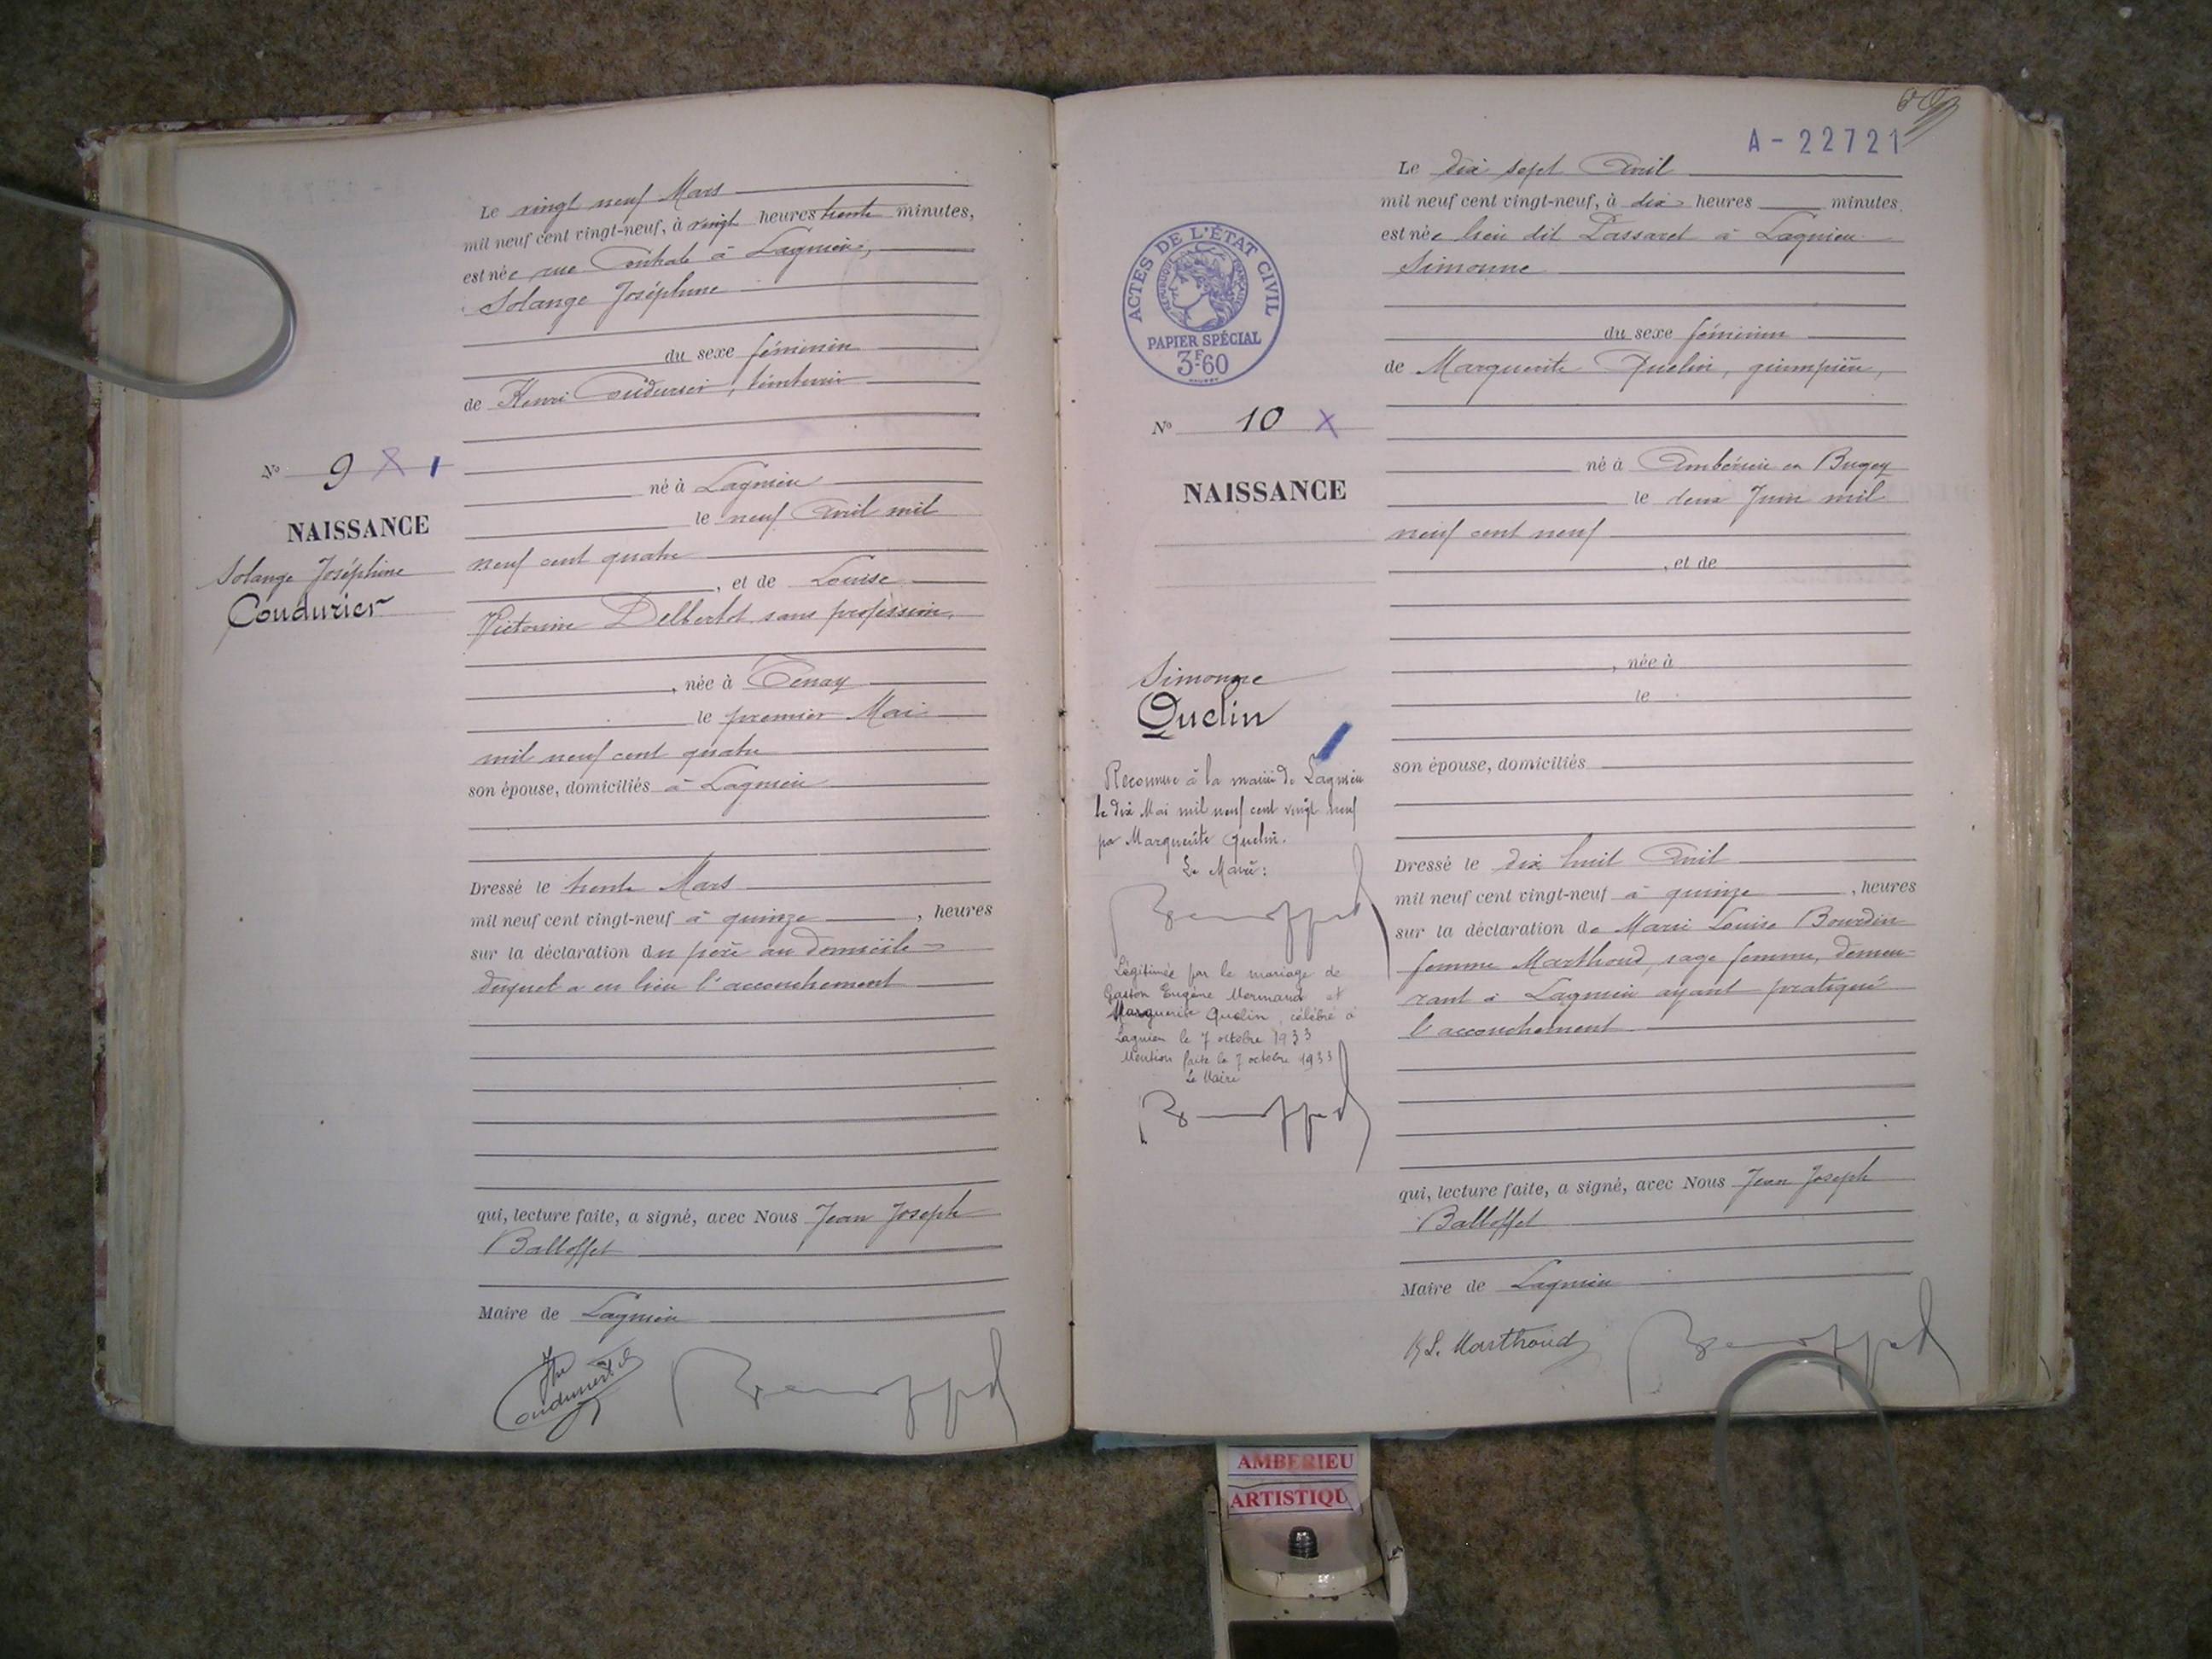 Le vingt neuf Mars
mil neuf cent vingt-neuf, à vingt heures trente minutes,
est née rue Centrale à Lagnieu,
Solange Joséphine
du sexe féminin
de Henri Coudurier,
N° 9 X
né à Lagnieu
le neuf Avril mil
NAISSANCE
neuf cent quatre
Solange Joséphine
, et de Louise
Coudurier
Victorine Delbertot sans profession,
, née à Tenay
le premier Mai
mil neuf cent quatre
son épouse, domiciliés à Lagnieu
Dressé le trente Mars
mil neuf cent vingt-neuf à quinze , heures
sur la déclaration du père au domicile
duquel a eu lieu l'accouchement
qui, lecture faite, a signé, avec Nous Jean Joseph
Balloffet
Maire de Lagnieu
A-22721
Le dix sept Avril
mil neuf cent vingt-neuf, à dix heures minutes,
est née lieu dit Passaret à Lagnieu
Simonne
ACTES DE L'ÉTAT CIVIL
RÉPUBLIQUE FRANÇAISE
PAPIER SPÉCIAL
3F.60
du sexe féminin
de Marguerite Quelin, guimpière,
N° 10 X
né à Ambérieu en Bugey
NAISSANCE
le deux Juin mil
neuf cent neuf
, et de
, née à
le
Simonne
Quelin
son épouse, domiciliés
Reconnue à la mairie de Lagnieu
le dix Mai mil neuf cent vingt neuf
par Marguerite Quelin.
Le Maire:
Dressé le dix huit Avril
mil neuf cent vingt-neuf à quinze , heures
sur la déclaration de Marie Louise Bourdin
femme Marthoud, sage femme, demeu-
rant à Lagnieu ayant pratiqué
l'accouchement
Légitimée par le mariage de
Gaston Eugène Mermand et
Marguerite Quelin, célébré à
Lagnieu le 7 octobre 1933
Mention faite le 7 octobre 1933
Le Maire
qui, lecture faite, a signé, avec Nous Jean Joseph
Balloffet
Maire de Lagnieu
L. Marthoud
AMBERIEU
ARTISTIQU